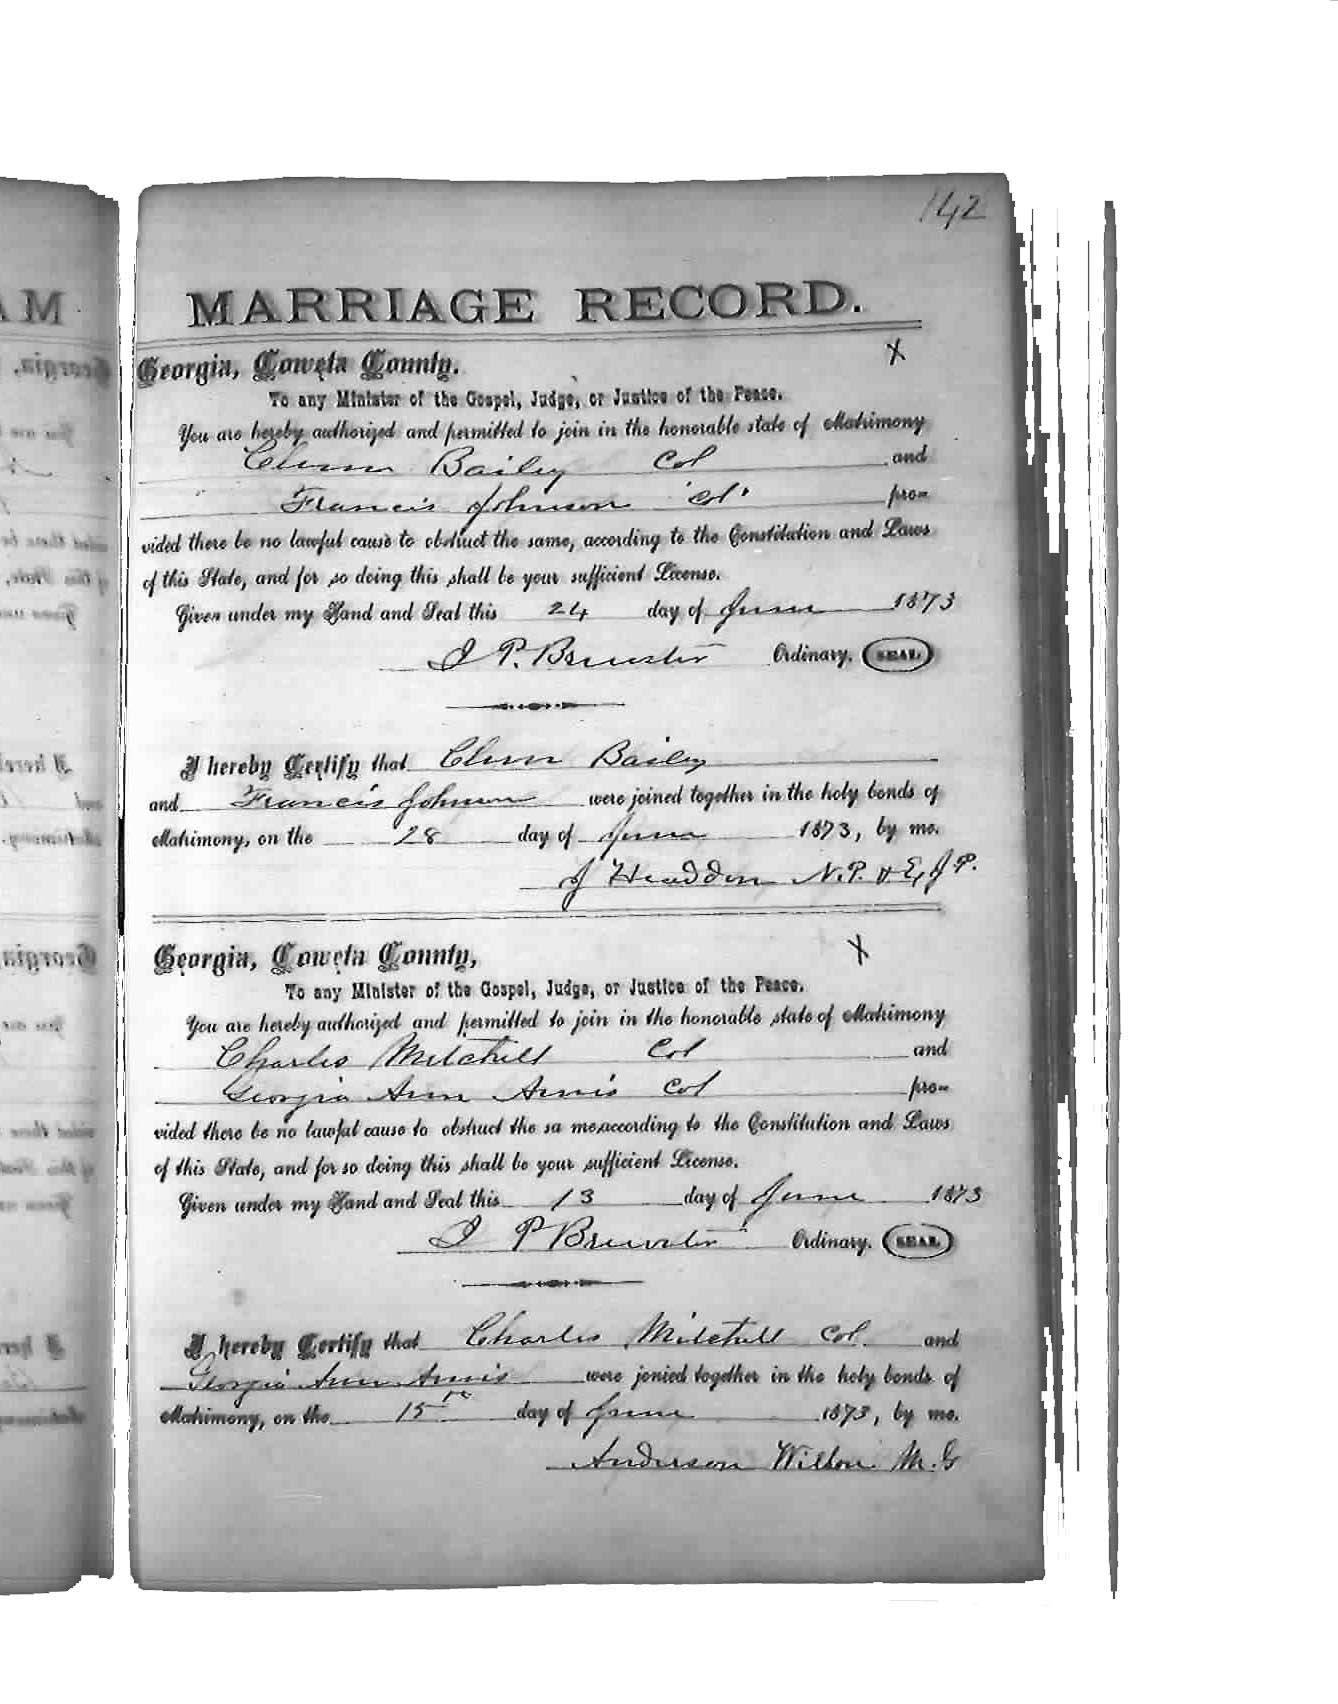 142
MARRIAGE RECORD.
Georgia, Coweta County.
To any Minister of the Gospel, Judge, or Justice of the Peace.
You are hereby authorized and permitted to join in the honorable state of Matrimony
Bailey Col and
Francis Johnson "Col" pro-
vided there be no lawful cause to obstruct the same, according to the Constitution and Laws
of this State, and for so doing this shall be your sufficient License.
Given under my Hand and Seal this 24 day of June 1873
J P. Brewster Ordinary. SEAL
I hereby Certify that Bailey
and Francis Johnson were joined together in the holy bonds of
Matrimony, on the 28 day of June 1873, by me.
J Headden N.P. & Ex J P.
Georgia, Coweta County,
To any Minister of the Gospel, Judge, or Justice of the Peace.
You are hereby authorized and permitted to join in the honorable state of Matrimony
Charles Mitchell Col and
Georgia Ann Col pro-
vided there be no lawful cause to obstruct the sa me,according to the Constitution and Laws
of this State, and for so doing this shall be your sufficient License.
Given under my Hand and Seal this 13 day of June 1873
J P Brewster Ordinary. SEAL
I hereby Certify that Charles Mitchell Col. and
Georgia Ann were jonied together in the holy bonds of
Matrimony, on the 15th day of June 1873, by me.
Anderson M. G